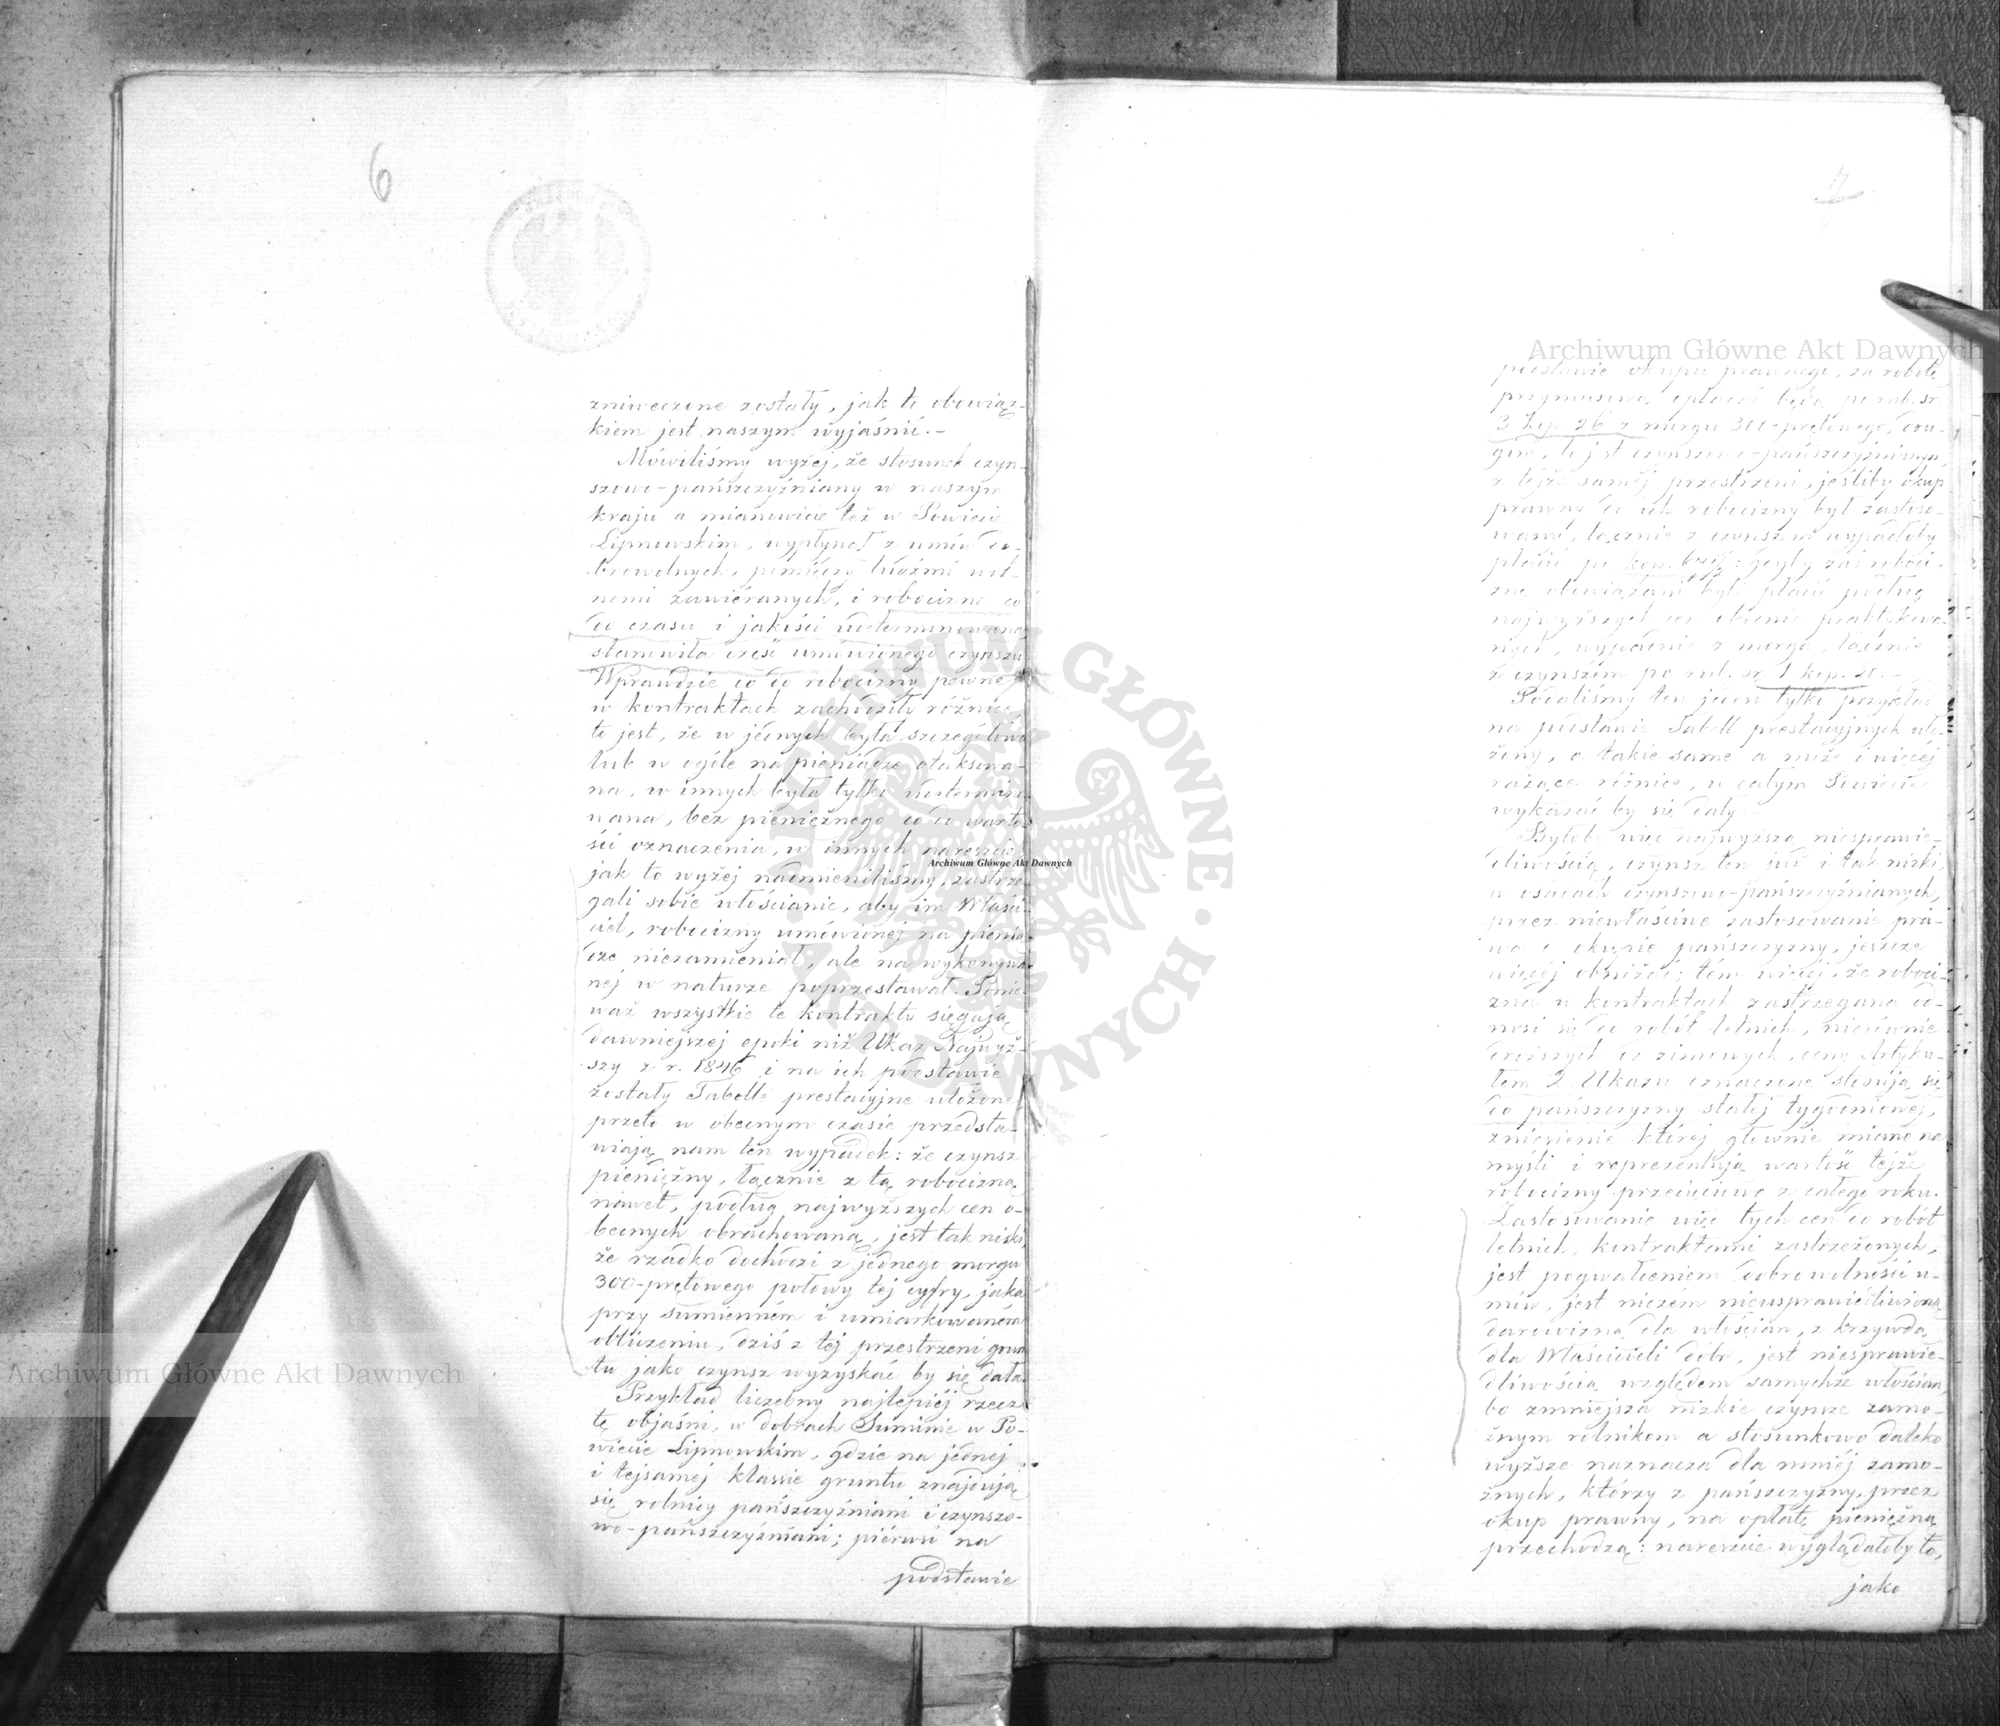 6
zniweczone zostały, jak to obowiąz-
kiem jest naszym wyjaśnić.-
Mówiliśmy wyżej, że stosunek czyn-
szowo-pańszczyźniany w naszym
kraju a mianowicie też w Powiecie
Lipnowskim, wypłynął z umów do-
browolnych, pomiędzy ludźmi wol-
nemi zawiéranych, i robocizna co
do czasu i jakości determinowana
stanowiła część umówionego czynszu
Wprawdzie co do robocizny pewne
w kontraktach zachodziły różnice,
to jest, że w jednych była szczegółowo
lub w ogóle na pieniądze otaksowa-
na, w innych była tylko determino-
wana, bez pieniężnego co do warto-
ści oznaczenia, w innych nareszcie
jak to wyżej nadmieniliśmy, zastrze-
gali sobie włościanie, aby im Właści-
ciel, robocizny umówionéj na pienią-
dze niezamieniał, ale na wykonywa-
néj w naturze poprzestawał. Ponie-
waż wszystkie te kontrakta sięgają
dawniejszej epoki niż Ukaz Najwyż-
szy z r. 1846 i na ich podstawie
zostały Tabelle prestacyjne ułożone,
przeto w obecnym czasie przedsta-
wiają nam ten wypadek: że czynsz
pieniężny, łącznie z tą robocizną
nawet, podług najwyższych cen o-
becnych obrachowaną, jest tak niski,
że rzadko dochodzi z jednego morga
300-prętowego połowy téj cyfry, jaka
przy sumienném i umiarkowaném
obliczeniu, dziś z téj przestrzeni grun-
tu jako czynsz wyzyskać by się dała.
Przykład liczebny najlepiéj rzecz
tę objaśni, w dobrach Suminie w Po-
wiecie Lipnowskim, gdzie na jednéj
i téjsaméj klassie gruntu znajdują
się rolnicy pańszczyźniani i czynszo-
wo-pańszczyźniani; piérwsi na
podstawie
7
podstawie okupu prawnego, za robotę
przymusową opłacać będą po rub. sr.
3 kop. 26 z morgu 300-prętowego, dru-
gim, to jest czynszowo-pańszczyźnianym
z téjże saméj przestrzeni, jeśliby okup
prawny do ich robocizny był zastoso-
wany, łącznie z czynszem wypadłoby
płacić po kop. : gdyby zaś roboci-
znę obowiązani byli płacić podług
najwyższych cen obecnie praktykowa-
nych, wypadnie z morga, łącznie
z czynszem po rub. sr. 1 kop.
Podaliśmy ten jeden tylko przykład
na podstawie Tabell prestacyjnych uło-
żony, a takie same a może i więcéj
rażące różnice, w całym Powiecie
wykazać by się dały.
Byłoby więc najwyższą niesprawie-
dliwością, czynsz ten już i tak nizki,
w osadach czynszowo-pańszczyźnianych,
przez niewłaściwe zastosowanie pra-
wa o okupie pańszczyzny, jeszcze
więcéj obniżać; tém więcéj, że roboci-
zna w kontraktach zastrzegana od-
nosi się do robót letnich, nierównie
droższych od zimowych, ceny Artyku-
łem 2 Ukazu oznaczone stosują się
do pańszczyzny stałéj tygodniowéj,
zniesienie któréj głównie miano na
myśli i reprezentują wartość téjże
robocizny przecięciowo z całego roku.
Zastosowanie więc tych cen do robót
letnich, kontraktami zastrzeżonych,
jest pogwałceniem dobrowolności u-
mów, jest niczém nieusprawiedliwioną
darowizną dla włościan, z krzywdą
dla Właścicieli dóbr, jest niesprawie-
dliwością względem samychże włościan,
bo zmniejsza nizkie czynsze zamo-
żnym rolnikom a stosunkowo daleko
wyższe naznacza dla mniéj zamo-
żnych, którzy z pańszczyzny, przez
okup prawny, na opłatę pieniężną
przechodzą: nareszcie wyglądałoby to,
jako
Archiwum Główne Akt Dawnych
Archiwum Główne Akt Dawnych
Archiwum Główne Akt Dawnych
ARCHIWUM GŁÓWNE AKT DAWNYCH